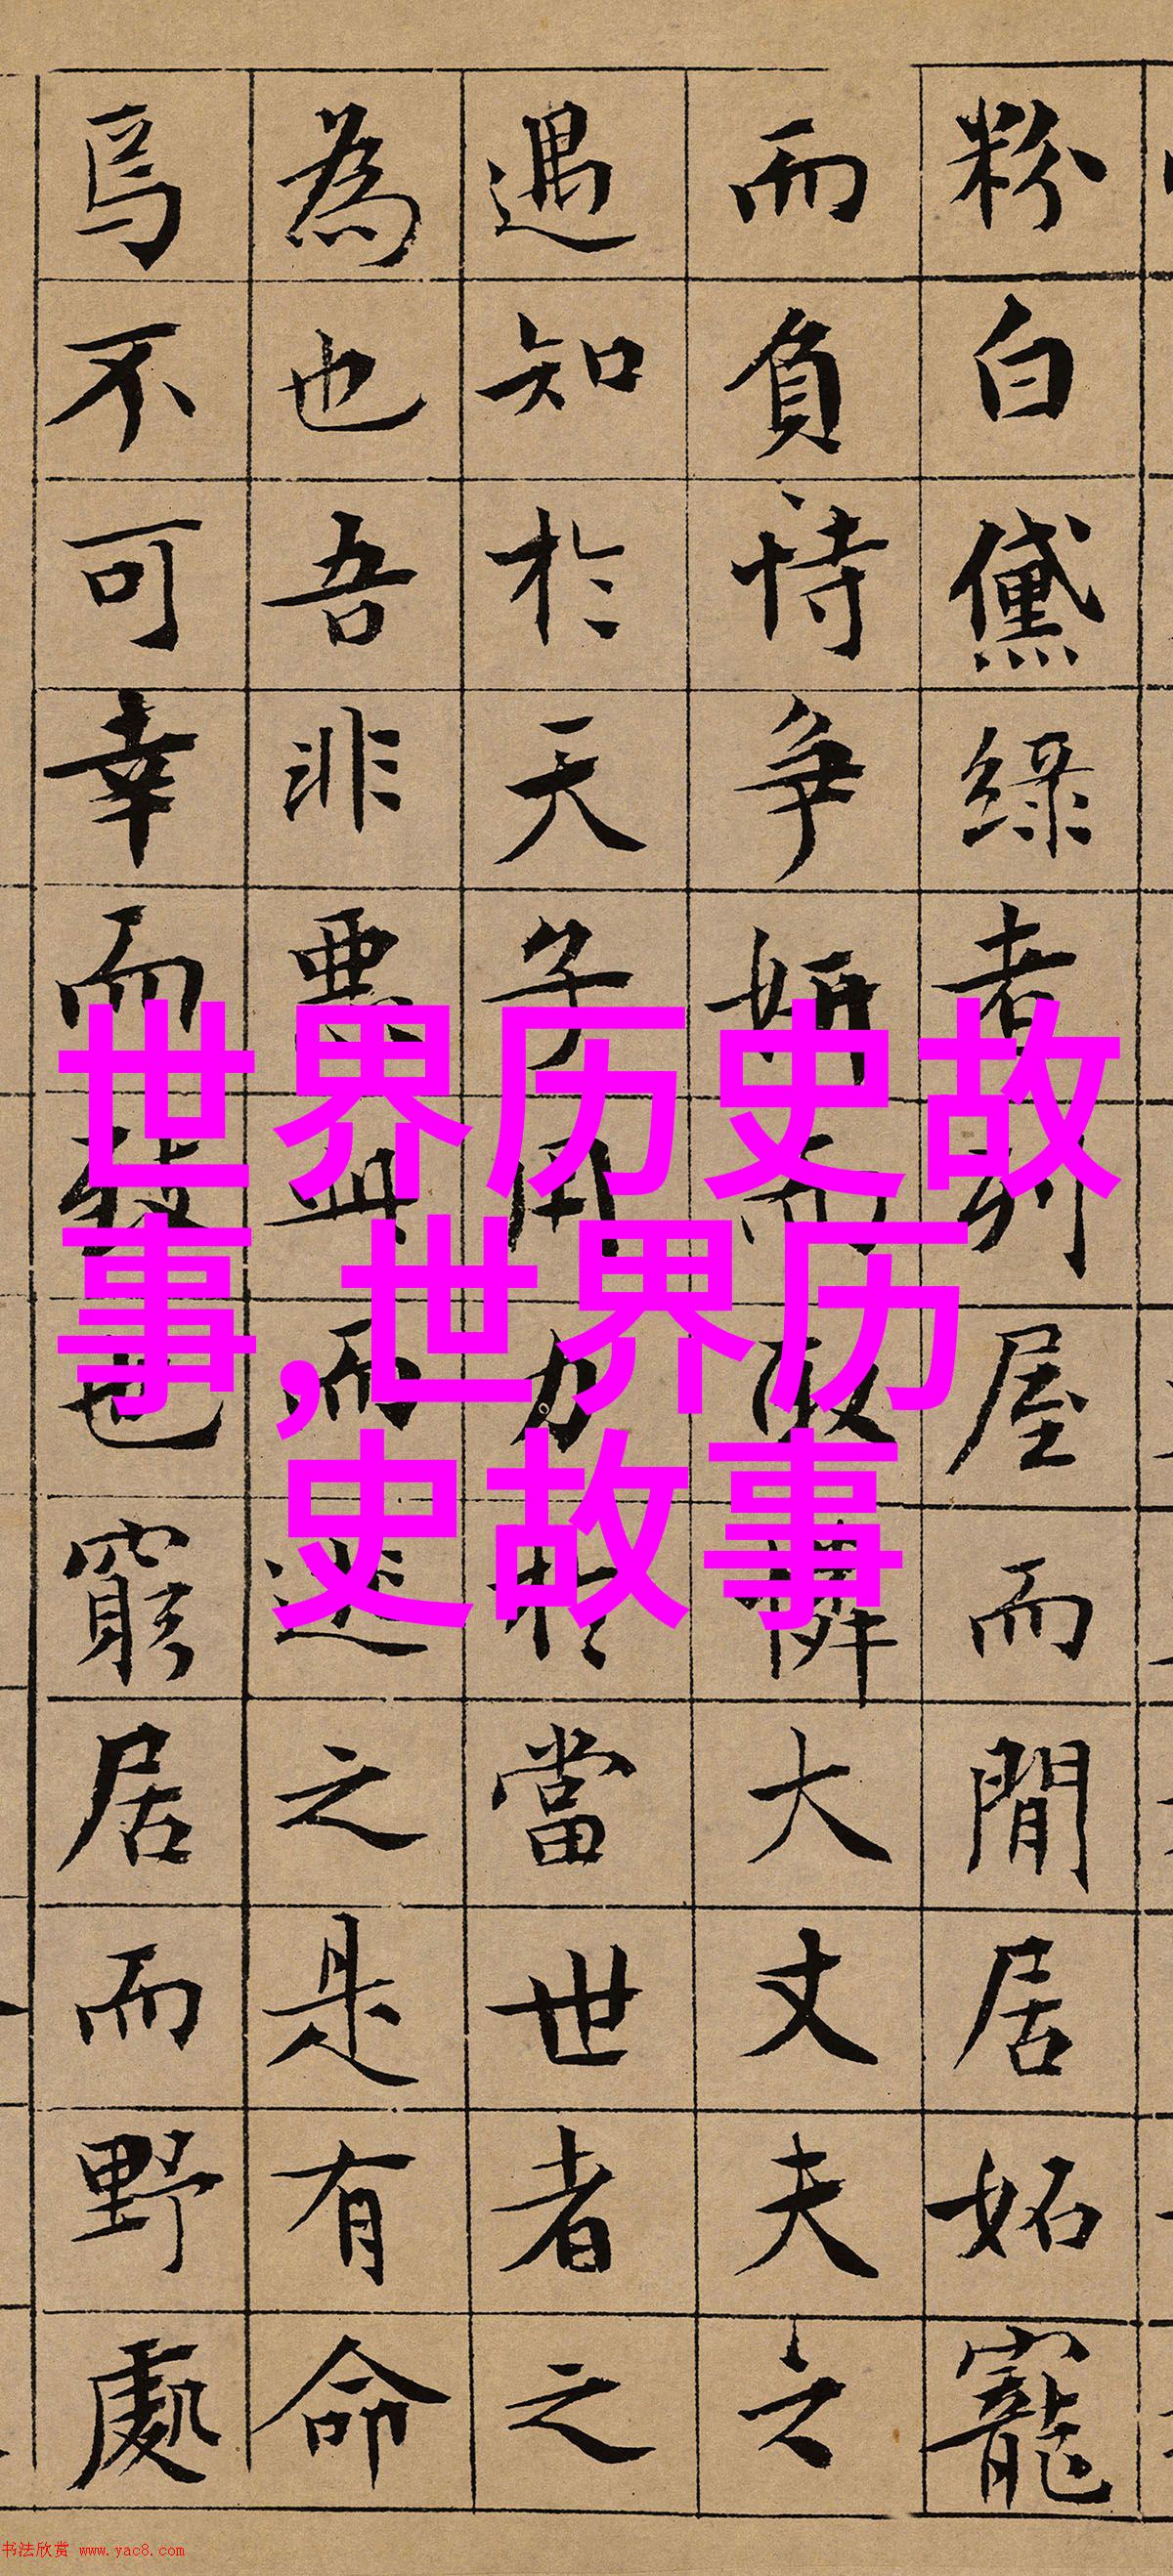 粉白黛綠者列屋而閒居妬寵
而負恃爭妍而取憐大丈夫之
遇知於天子用力於當世者之
為也吾非惡此而逃之是有命
焉不可幸而致也窮居而野處
世界历史故
事,世界历
史故事
书法欣赏 www.yac8.com